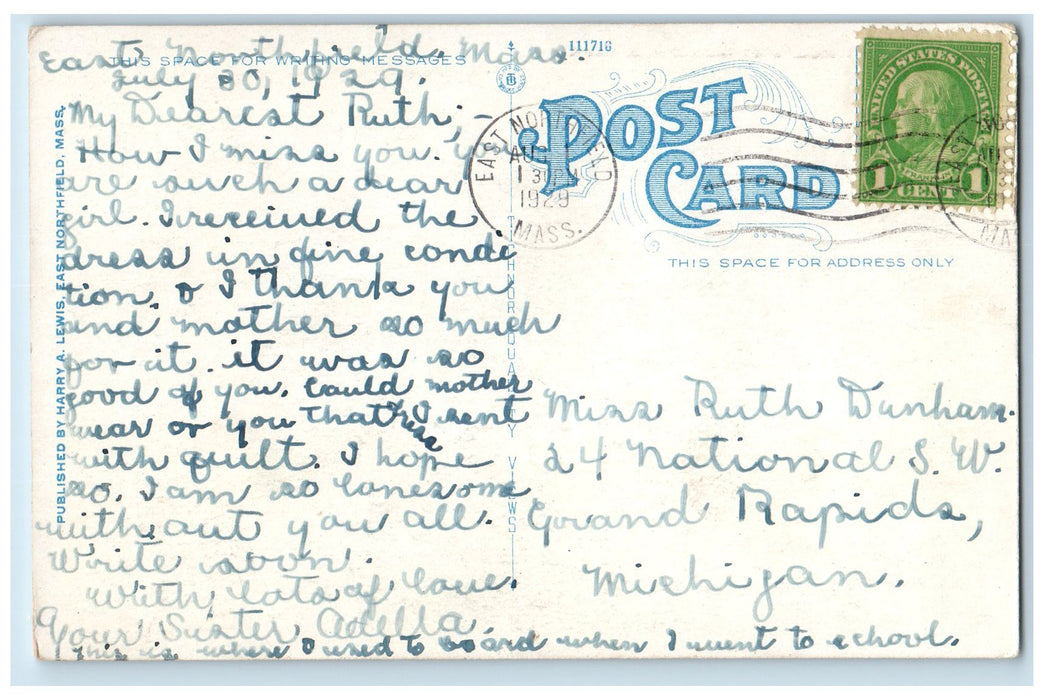 East Northfield, Mass.
THIS SPACE FOR WRITING MESSAGES
July 30, 1929.
My Dearest Ruth; -
How I miss you. you
are such a dear
girl. I received the
dress in fine condi
tion, & I thank you
and mother so much
for it. it was so
good of you. Could mother
wear or you that I sent
with quilt. I hope
so. I am so lonesome
without you all.
Write soon.
With lots of love.
Your Sister Adella.
This is where I used to board when I went to school.
PUBLISHED BY HARRY A. LEWIS, EAST NORTHFIELD, MASS.
111716
POST
CARD
THIS SPACE FOR ADDRESS ONLY
EAST NORTHFIELD
AUG
1
1929
MASS.
UNITED STATES POSTAGE
FRANKLIN
1 CENT 1
QUALITY VIEWS
Miss Ruth Dunham.
24 National S. W.
Grand Rapids,
Michigan.